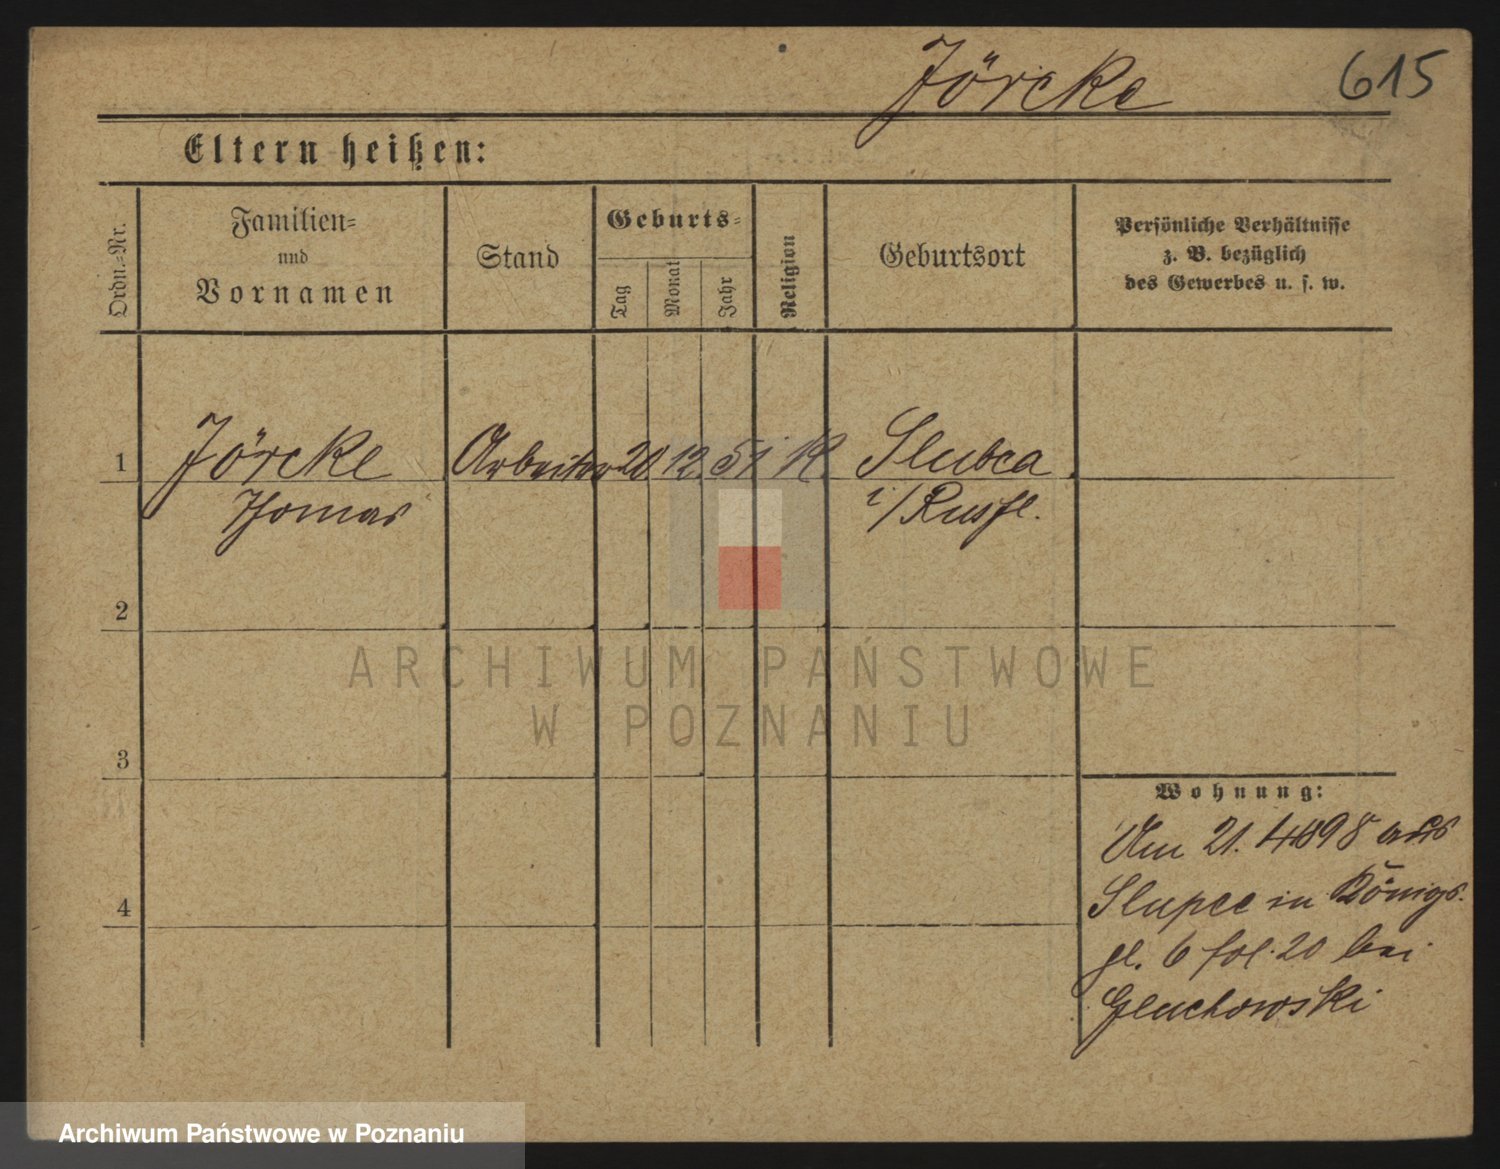 Jörcke 615
Eltern heißen:
Ordn.-Nr.
Familien-
und
Vornamen
Stand
Geburts-
Tag
Monat
Jahr
Religion
Geburtsort
Persönliche Verhältnisse
z. B. bezüglich
des Gewerbes u. s. w.
1 Jörcke Arbeiter 20 12. 51 K. Slubca
Thomas i/Russl.
2
ARCHIWUM PAŃSTWOWE
W POZNANIU
3
Wohnung:
Am 21. 4 898 aus
Slupce in Königs.
pl. 6 fol. 20 bei
4
Gluchowski
Archiwum Państwowe w Poznaniu